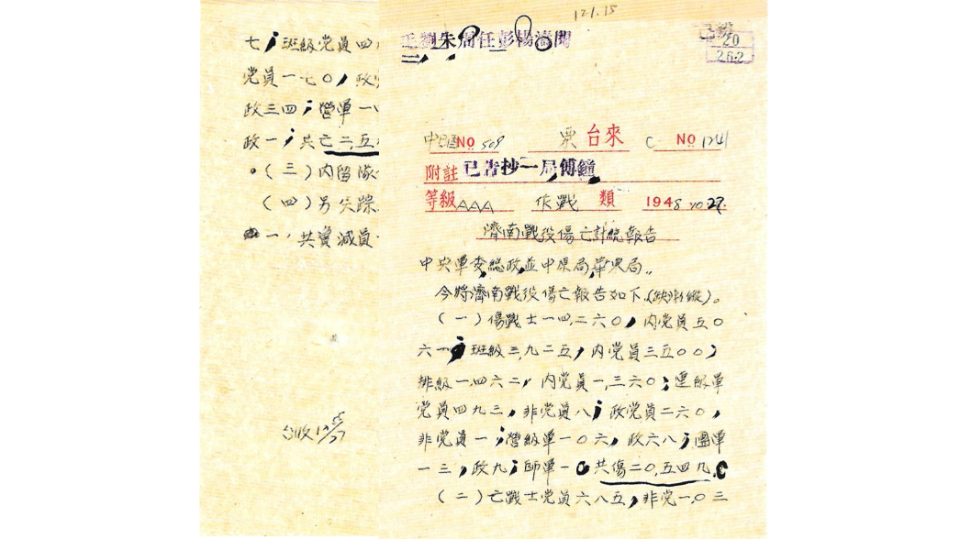 12.1.15
20
26.2
王劉朱周任彭楊濤聞
NO 509 票台來 C NO 1241
附註 已告抄一局傅鐘
等級 AAA 作戰 類 1948 10 27.
濟南戰役傷亡計統報告
中央軍委總政並中原局華東局。
今將濟南戰役傷亡報告如下(缺渤縱)。
(一)傷戰士一四,二六〇,內党員五〇
六一;班級三,九二五,內党員三五〇〇;
排級一,四六二,內党員一,三六〇;連級軍
党員四九三,非党員八;政党員二六〇,
非党員一;營級軍一〇六,政六八;團軍
一三,政九;師軍一。共傷二〇,五四九。
(二)亡戰士党員六八五,非党一,〇三
七;班級党員四
党員一七〇,政
政三四;營軍一
政一;共亡二,五
。(三)內留隊
(四)另失踪
一,共實減員